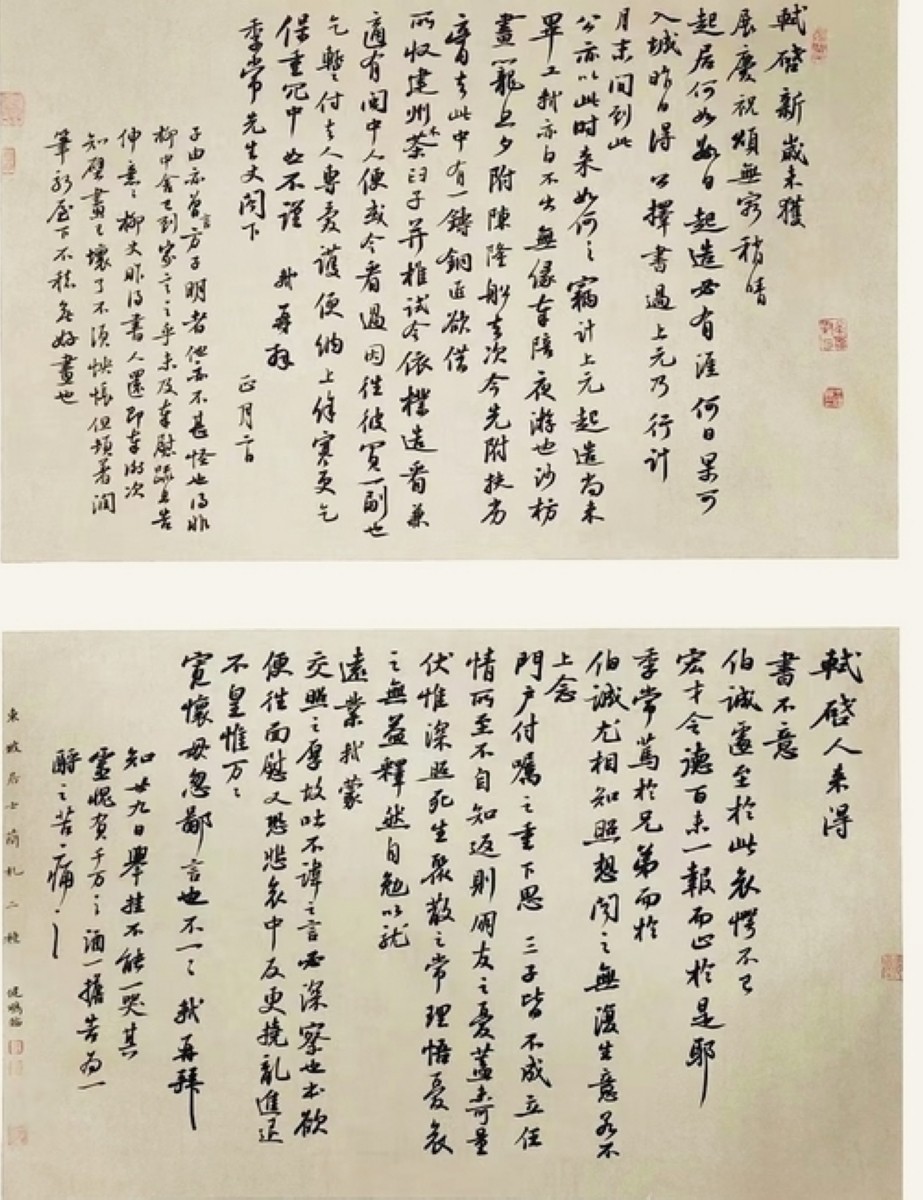 軾啓新歲未獲
展慶祝頌無窮稍晴
起居何如數日起造必有涯何日果可
入城昨日得公擇書過上元乃行計
月末間到此
公亦以此時來如何々竊計上元起造尚未
畢工軾亦自不出無緣奉陪夜游也沙枋
畫籠旦夕附陳隆船去次今先附扶劣
膏去此中有一鑄銅匠欲借
所收建州木茶臼子并椎試令依樣造看兼
適有閩中人便或令看過因往彼買一副也
乞暫付去人專愛護便納上餘寒更乞
保重冗中恕不謹 軾再拜
季常先生丈閤下
正月二日
子由亦曾言方子明者他亦不甚怪也得非
柳中舍已到家言之乎未及奉慰疏且告
伸意々柳丈昨得書人還即奉謝次
知壁畫已壞了不須怏悵但頓著潤
筆新屋下不愁無好畫也
軾啓人來得
書不意
伯誠遽至於此哀愕不已
宏才令德百未一報而止於是耶
季常篤於兄弟而於
伯誠尤相知照想聞之無復生意若不
上念
門户付囑之重下思 三子皆不成立任
情所至不自知返則朋友之憂蓋未可量
伏惟深照死生聚散之常理悟憂哀
之無益釋然自勉以就
遠業軾蒙
交照之厚故吐不諱之言必深察也本欲
便往面慰又恐悲哀中反更撓亂進退
不皇惟万々
寬懷毋忽鄙言也不一々 軾再拜
知廿九日舉挂不能一哭其
靈愧負千万々酒一擔告為一
酹之苦痛々
東坡居士簡札二種